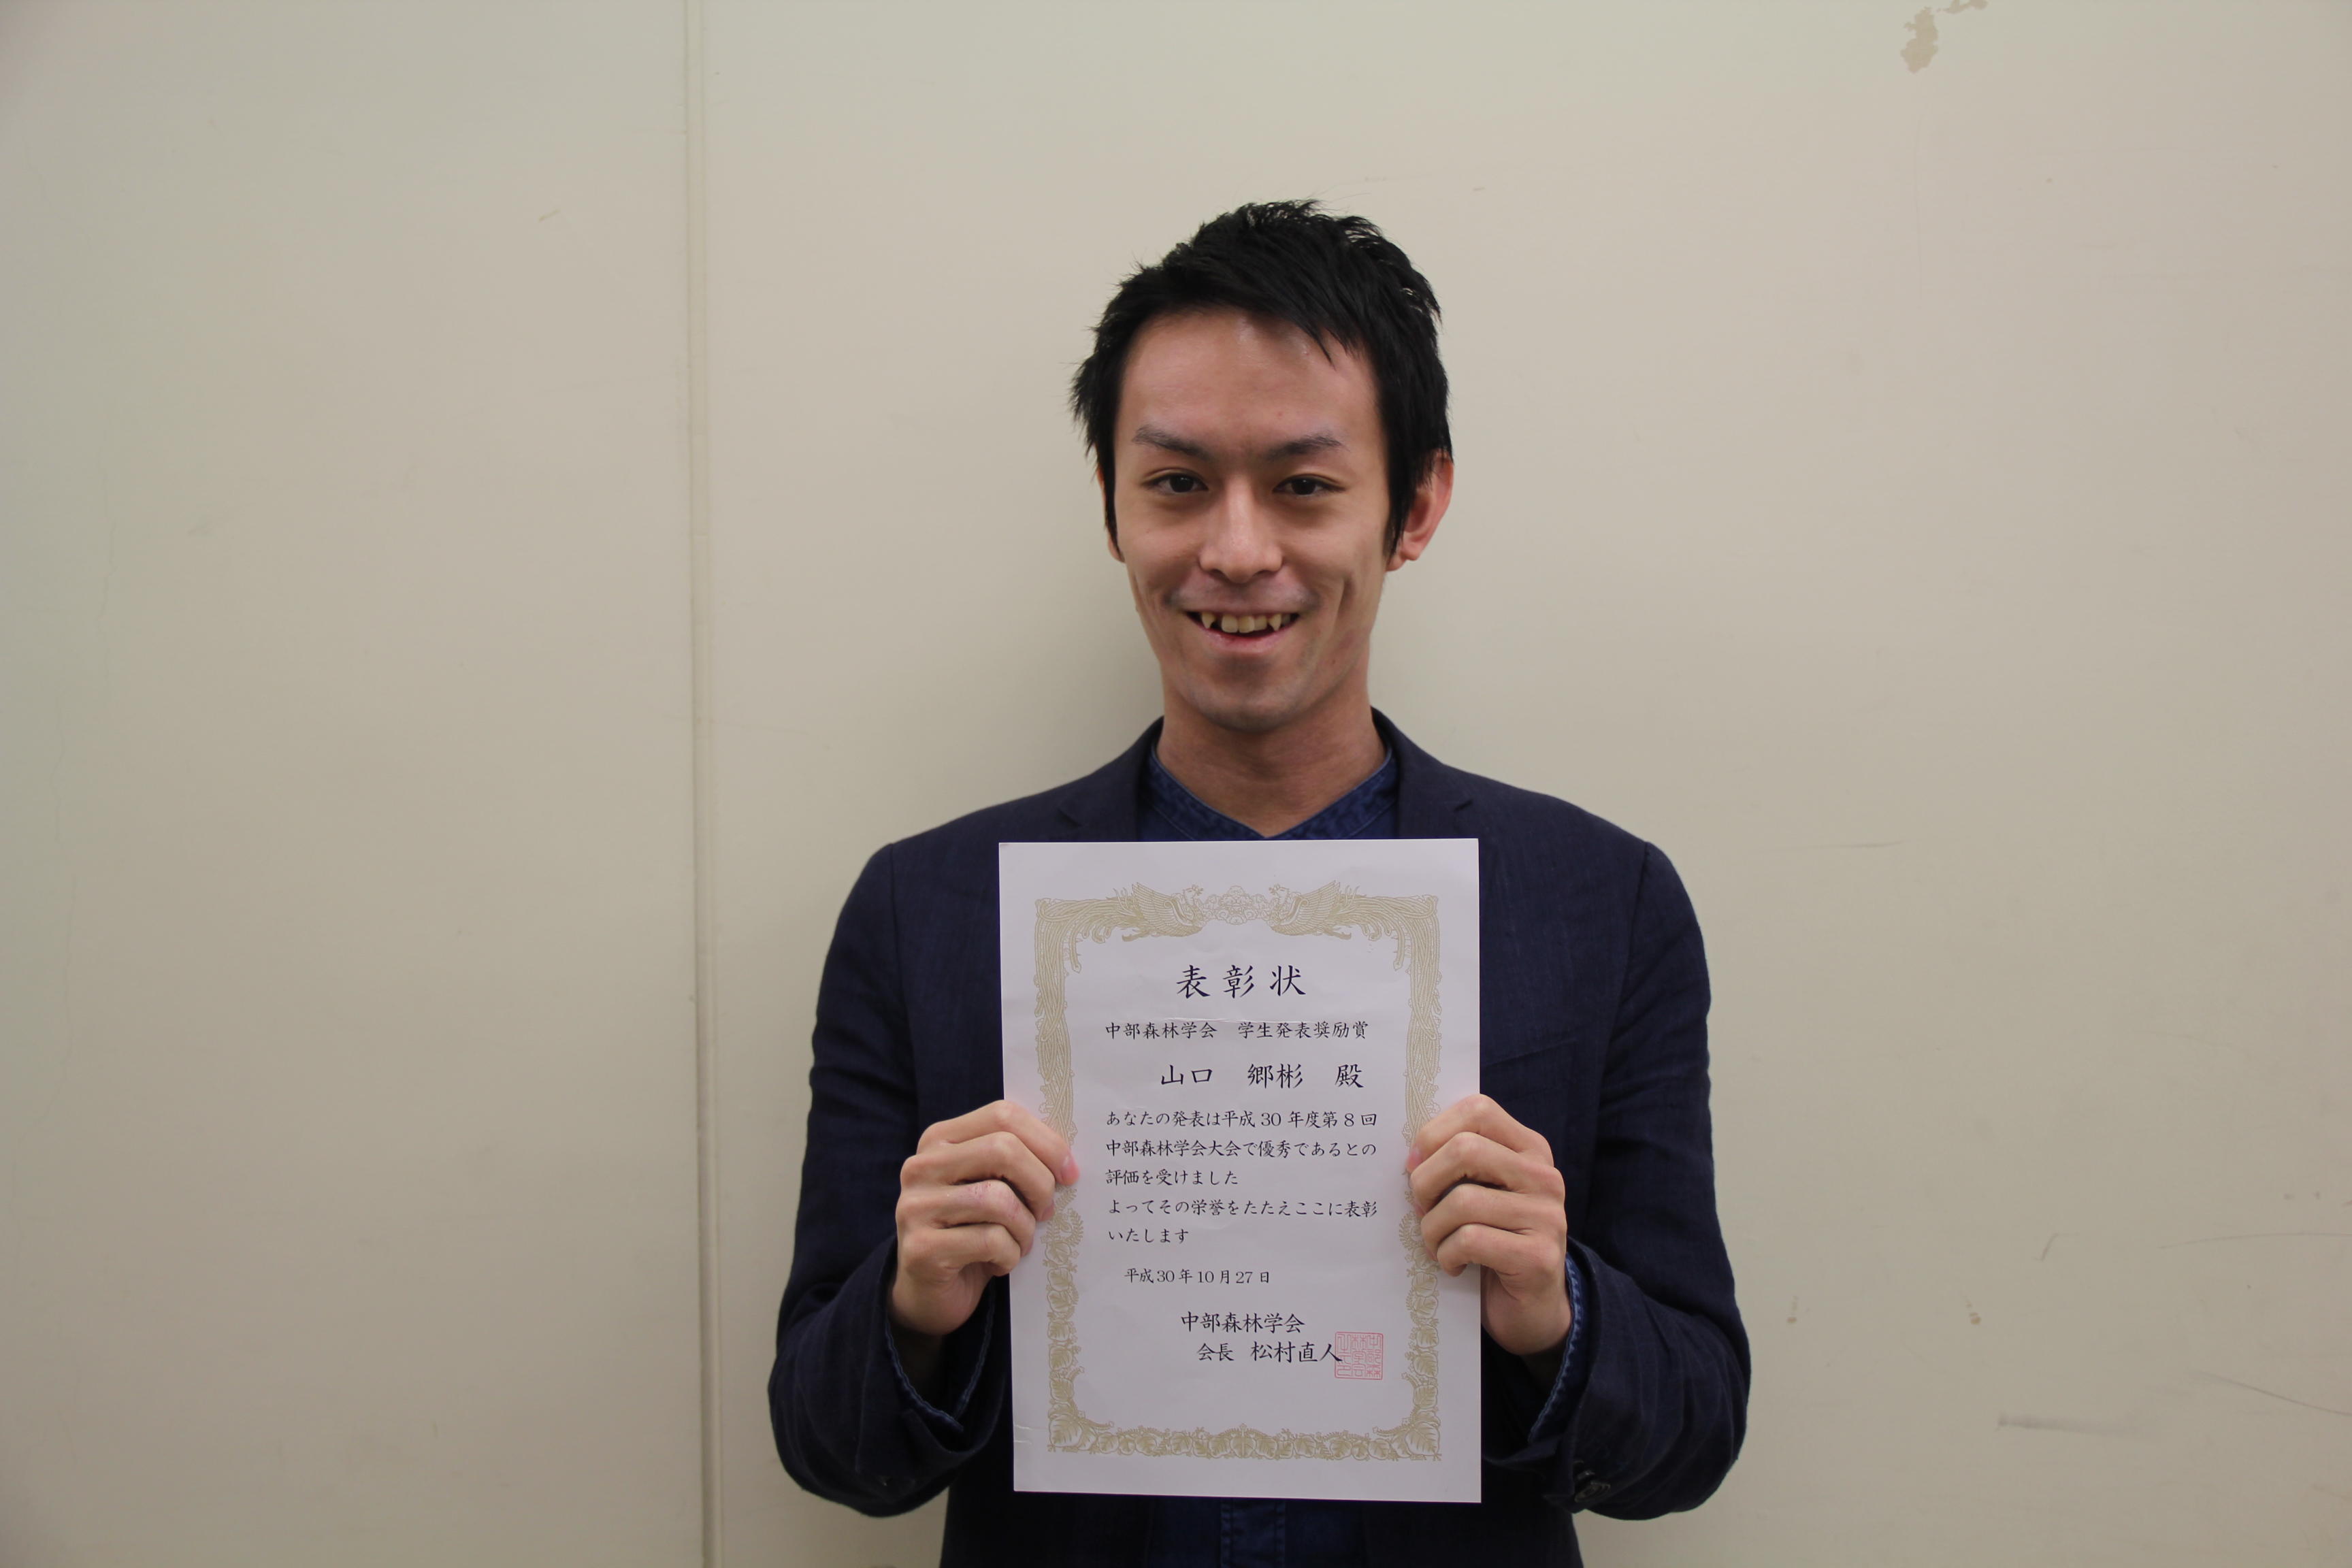 表彰状
中部森林学会　学生発表奨励賞
山口　郷彬　殿
あなたの発表は平成30年度第8回
中部森林学会大会で優秀であるとの
評価を受けました
よってその栄誉をたたえここに表彰
いたします
平成30年10月27日
中部森林学会
会長 松村直人